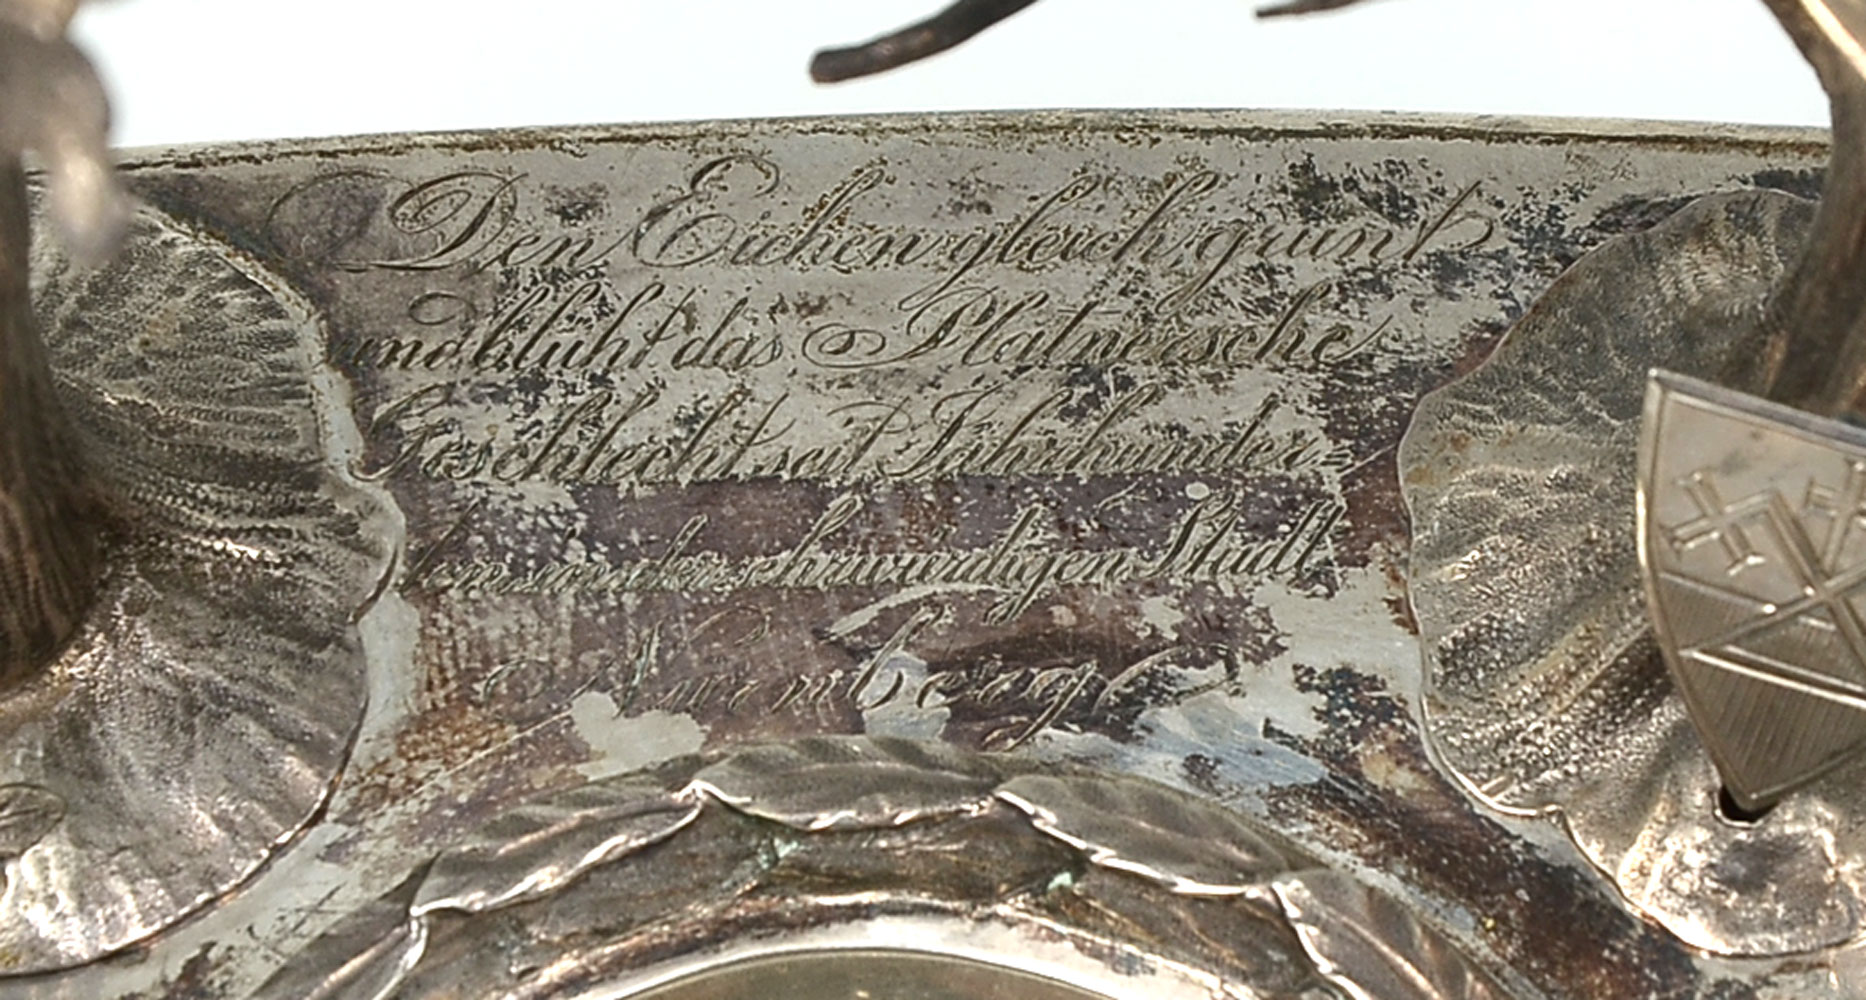 Den Eichen gleich grünt
und blüht das Platnersche
Geschlecht seit Jahrhunder-
ten in der ehrwürdigen Stadt
Nürnberg